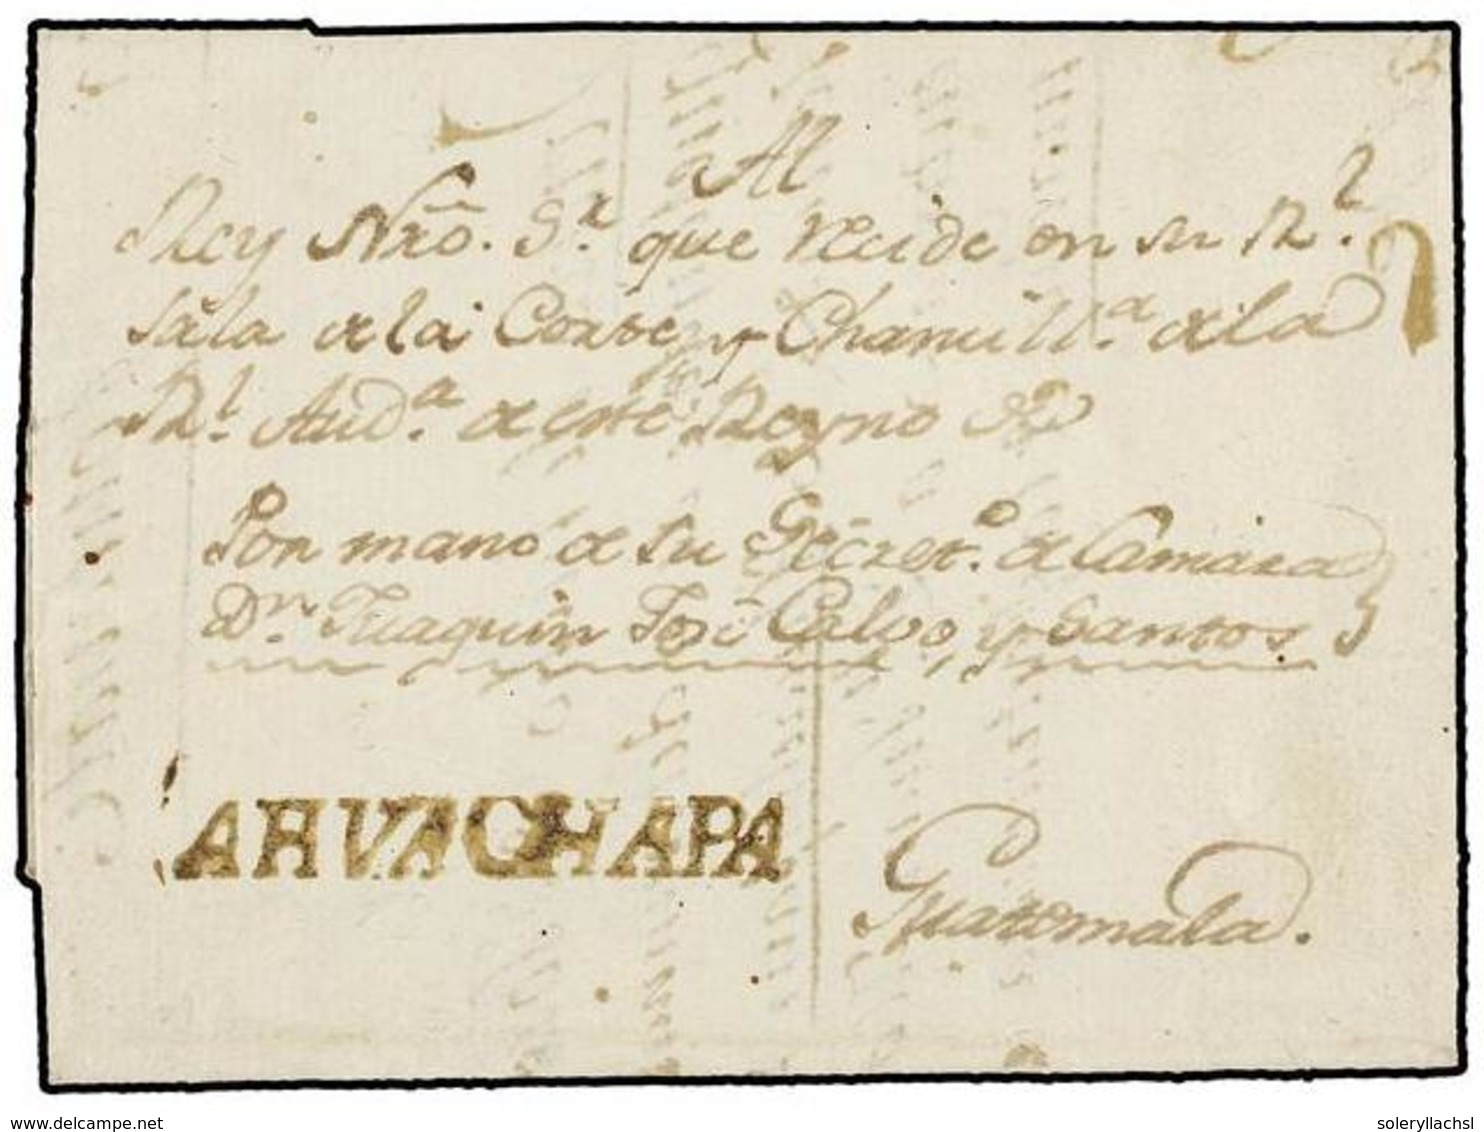 Al
Rey Nrõ. Sr. que recide en su Rl.
Sala de la Corte y Chanill.a de la
Rl. Aud.a de este Reyno &a
Por mano de su Secret.o de Camara
Dn. Juaquin José Calvo, y Santos
AHVACHAPA
Guatemala.
www.delcampe.net
soleryllachsl